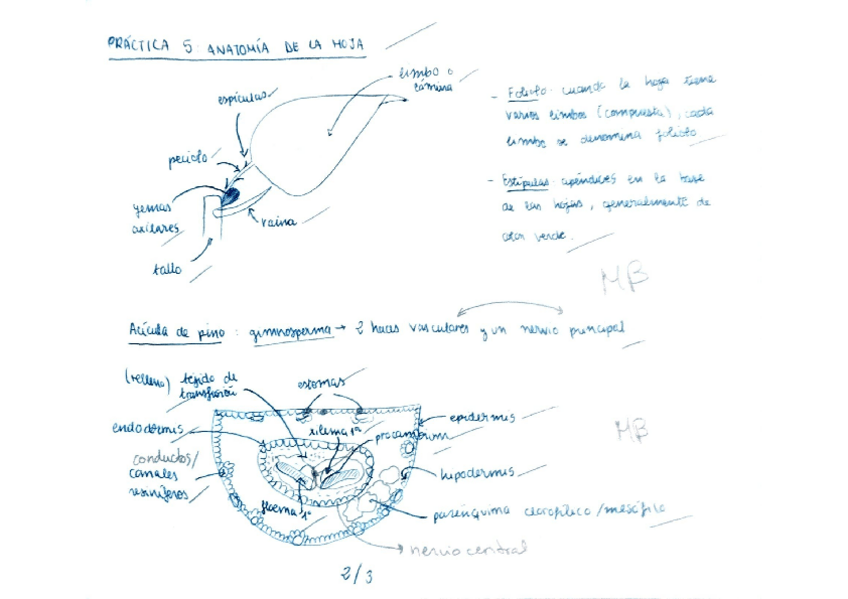 PRÁCTICA 5: ANATOMÍA DE LA HOJA
limbo o
lámina
espículas
peciolo
yemas
axilares
vaina
tallo
- Foliolo: cuando la hoja tiene
varios limbos (compuesta), cada
limbo se denomina foliolo
- Estípulas: apéndices en la base
de las hojas, generalmente de
color verde.
MB
Acícula de pino: gimnosperma → 2 haces vasculares y un nervio principal
(relleno) tejido de
transfusión
estomas
endodermis
xilema 1º
procambium
epidermis
MB
conductos/
canales
resiníferos
hipodermis
floema 1º
parénquima clorofílico/mesófilo
nervio central
2/3